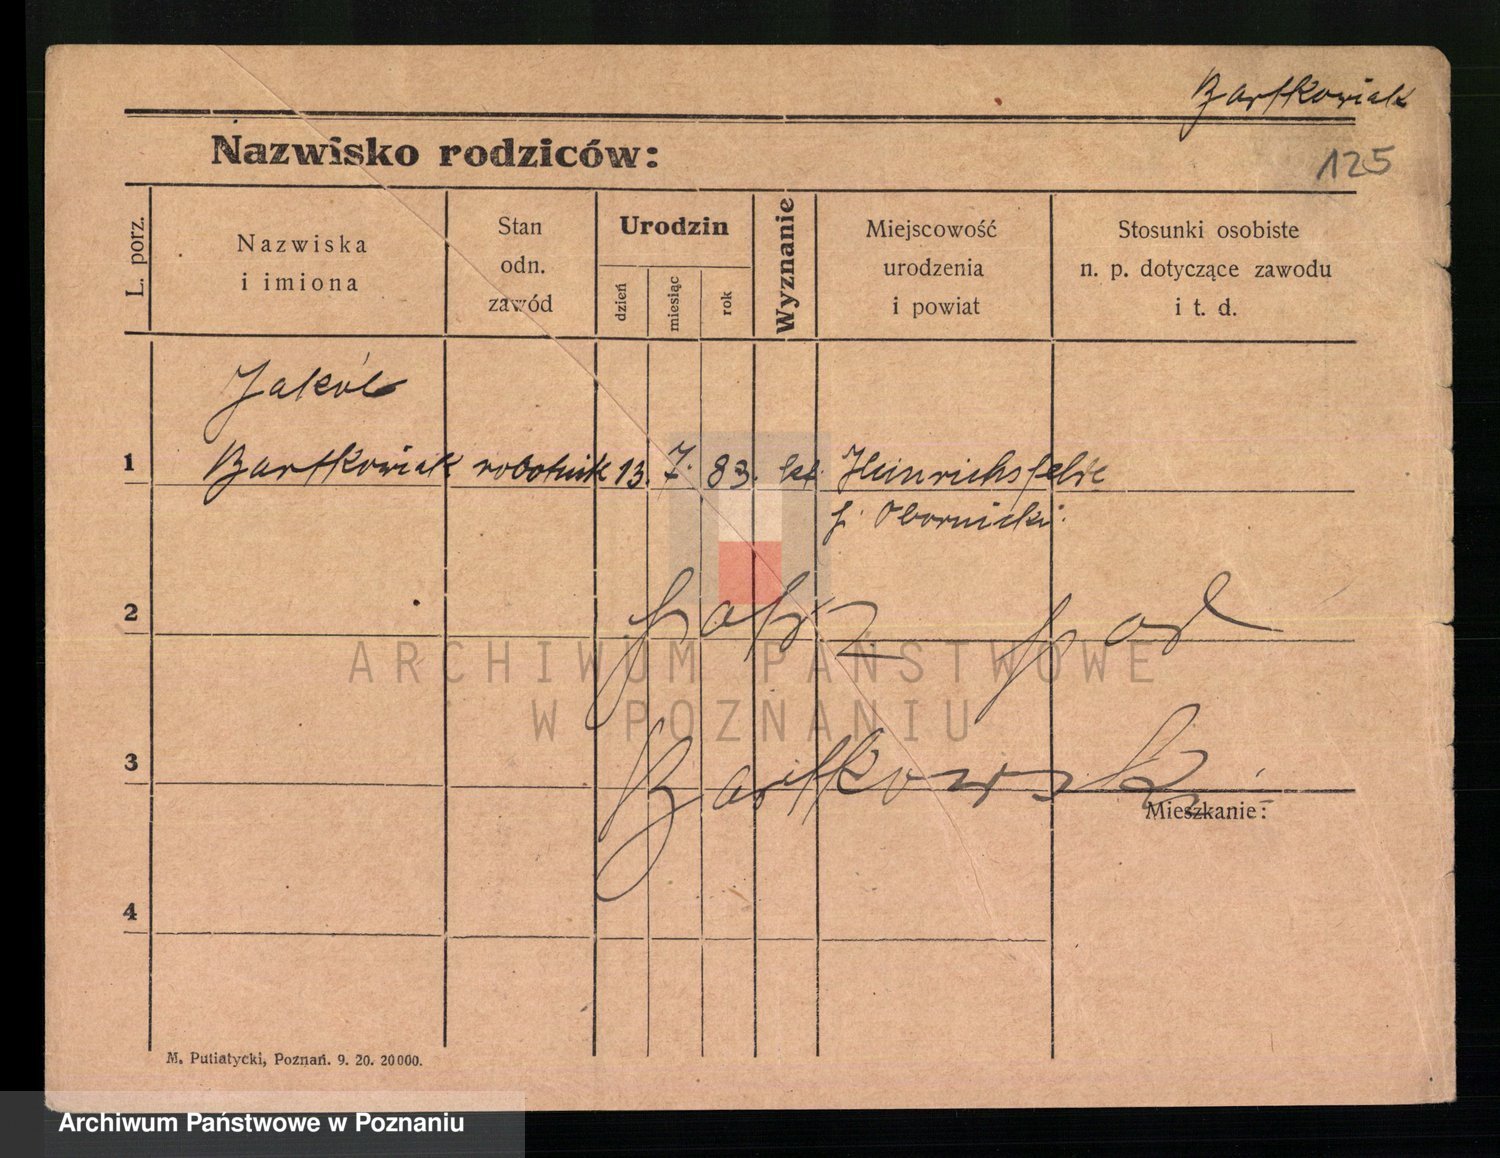 Bartkowiak
125
Nazwisko rodziców:
L. porz.
Nazwiska
i imiona
Stan
odn.
zawód
Urodzin
dzień
miesiąc
rok
Wyznanie
Miejscowość
urodzenia
i powiat
Stosunki osobiste
n. p. dotyczące zawodu
i t. d.
Jakób
1 Bartkowiak robotnik 13. 7. 83. kat. Heinrichsfelde
p. Obornicki.
2 patrz pod
ARCHIWUM PAŃSTWOWE
W POZNANIU
3 Bartkowski
Mieszkanie:
4
M. Putiatycki, Poznań. 9. 20. 20000.
Archiwum Państwowe w Poznaniu